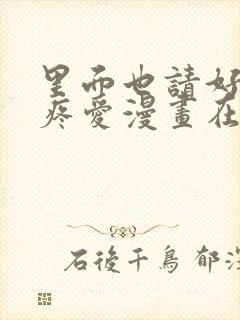 里而也請好
疼愛漫畫在
石後千鳥 郁